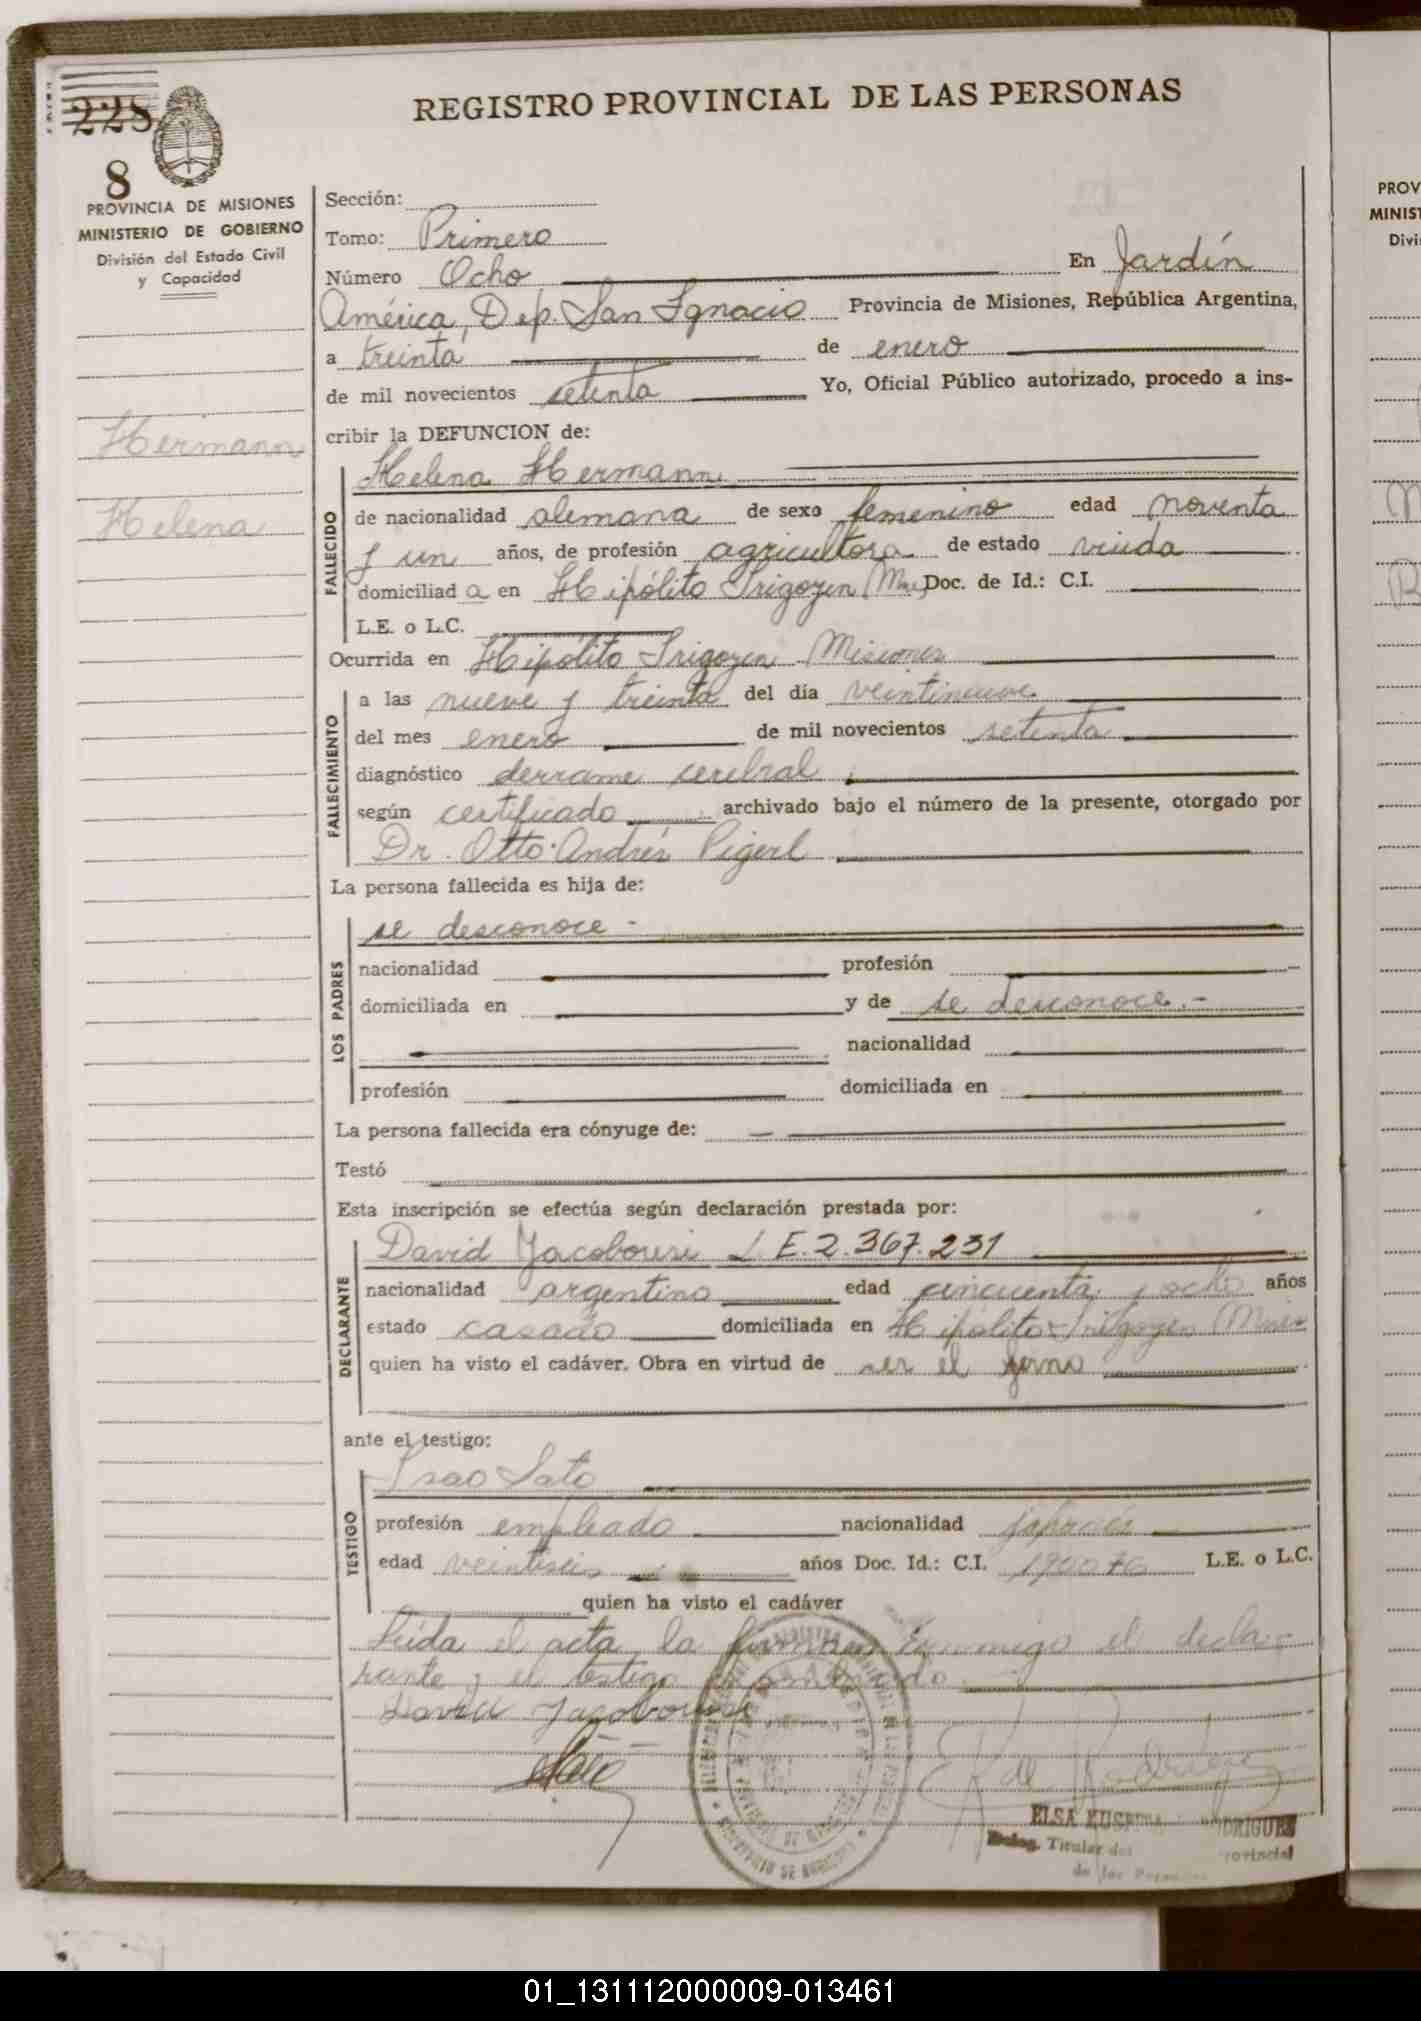 228
8
REGISTRO PROVINCIAL DE LAS PERSONAS
PROVINCIA DE MISIONES
MINISTERIO DE GOBIERNO
División del Estado Civil
y Capacidad
Hermann
Helena
Sección:
Tomo: Primero
Número Ocho En Jardín
América, Dep. San Ignacio Provincia de Misiones, República Argentina,
a treinta de enero
de mil novecientos setenta Yo, Oficial Público autorizado, procedo a ins-
cribir la DEFUNCION de:
FALLECIDO
Helena Hermann
de nacionalidad alemana de sexo femenino edad noventa
y un años, de profesión agricultora de estado viuda
domiciliad a en Hipólito Irigoyen (Mnes) Doc. de Id.: C.I.
L.E. o L.C.
Ocurrida en Hipólito Irigoyen Misiones
FALLECIMIENTO
a las nueve y treinta del día veintinueve
del mes enero de mil novecientos setenta
diagnóstico derrame cerebral
según certificado archivado bajo el número de la presente, otorgado por
Dr. Otto Andrés Pigerl
La persona fallecida es hija de:
LOS PADRES
se desconoce -
nacionalidad profesión
domiciliada en y de se desconoce.-
nacionalidad
profesión domiciliada en
La persona fallecida era cónyuge de:
Testó
Esta inscripción se efectúa según declaración prestada por:
DECLARANTE
David Jacobousi L.E. 2.367.231
nacionalidad argentino edad cincuenta y ocho años
estado casado domiciliada en Hipólito Irigoyen (Mnes
quien ha visto el cadáver. Obra en virtud de ser el yerno
ante el testigo:
TESTIGO
Isao Sato
profesión empleado nacionalidad japonés
edad veintiseis años Doc. Id.: C.I. 190076 L.E. o L.C.
quien ha visto el cadáver
Leída el acta la firman conmigo el decla-
rante y el testigo
David Jacobousi
Sato
E. de Rodriguez
ELSA RODRIGUEZ
Deleg. Titular del Provincial
de las Personas
PROV
MINIST
Divi
01_131112000009-013461